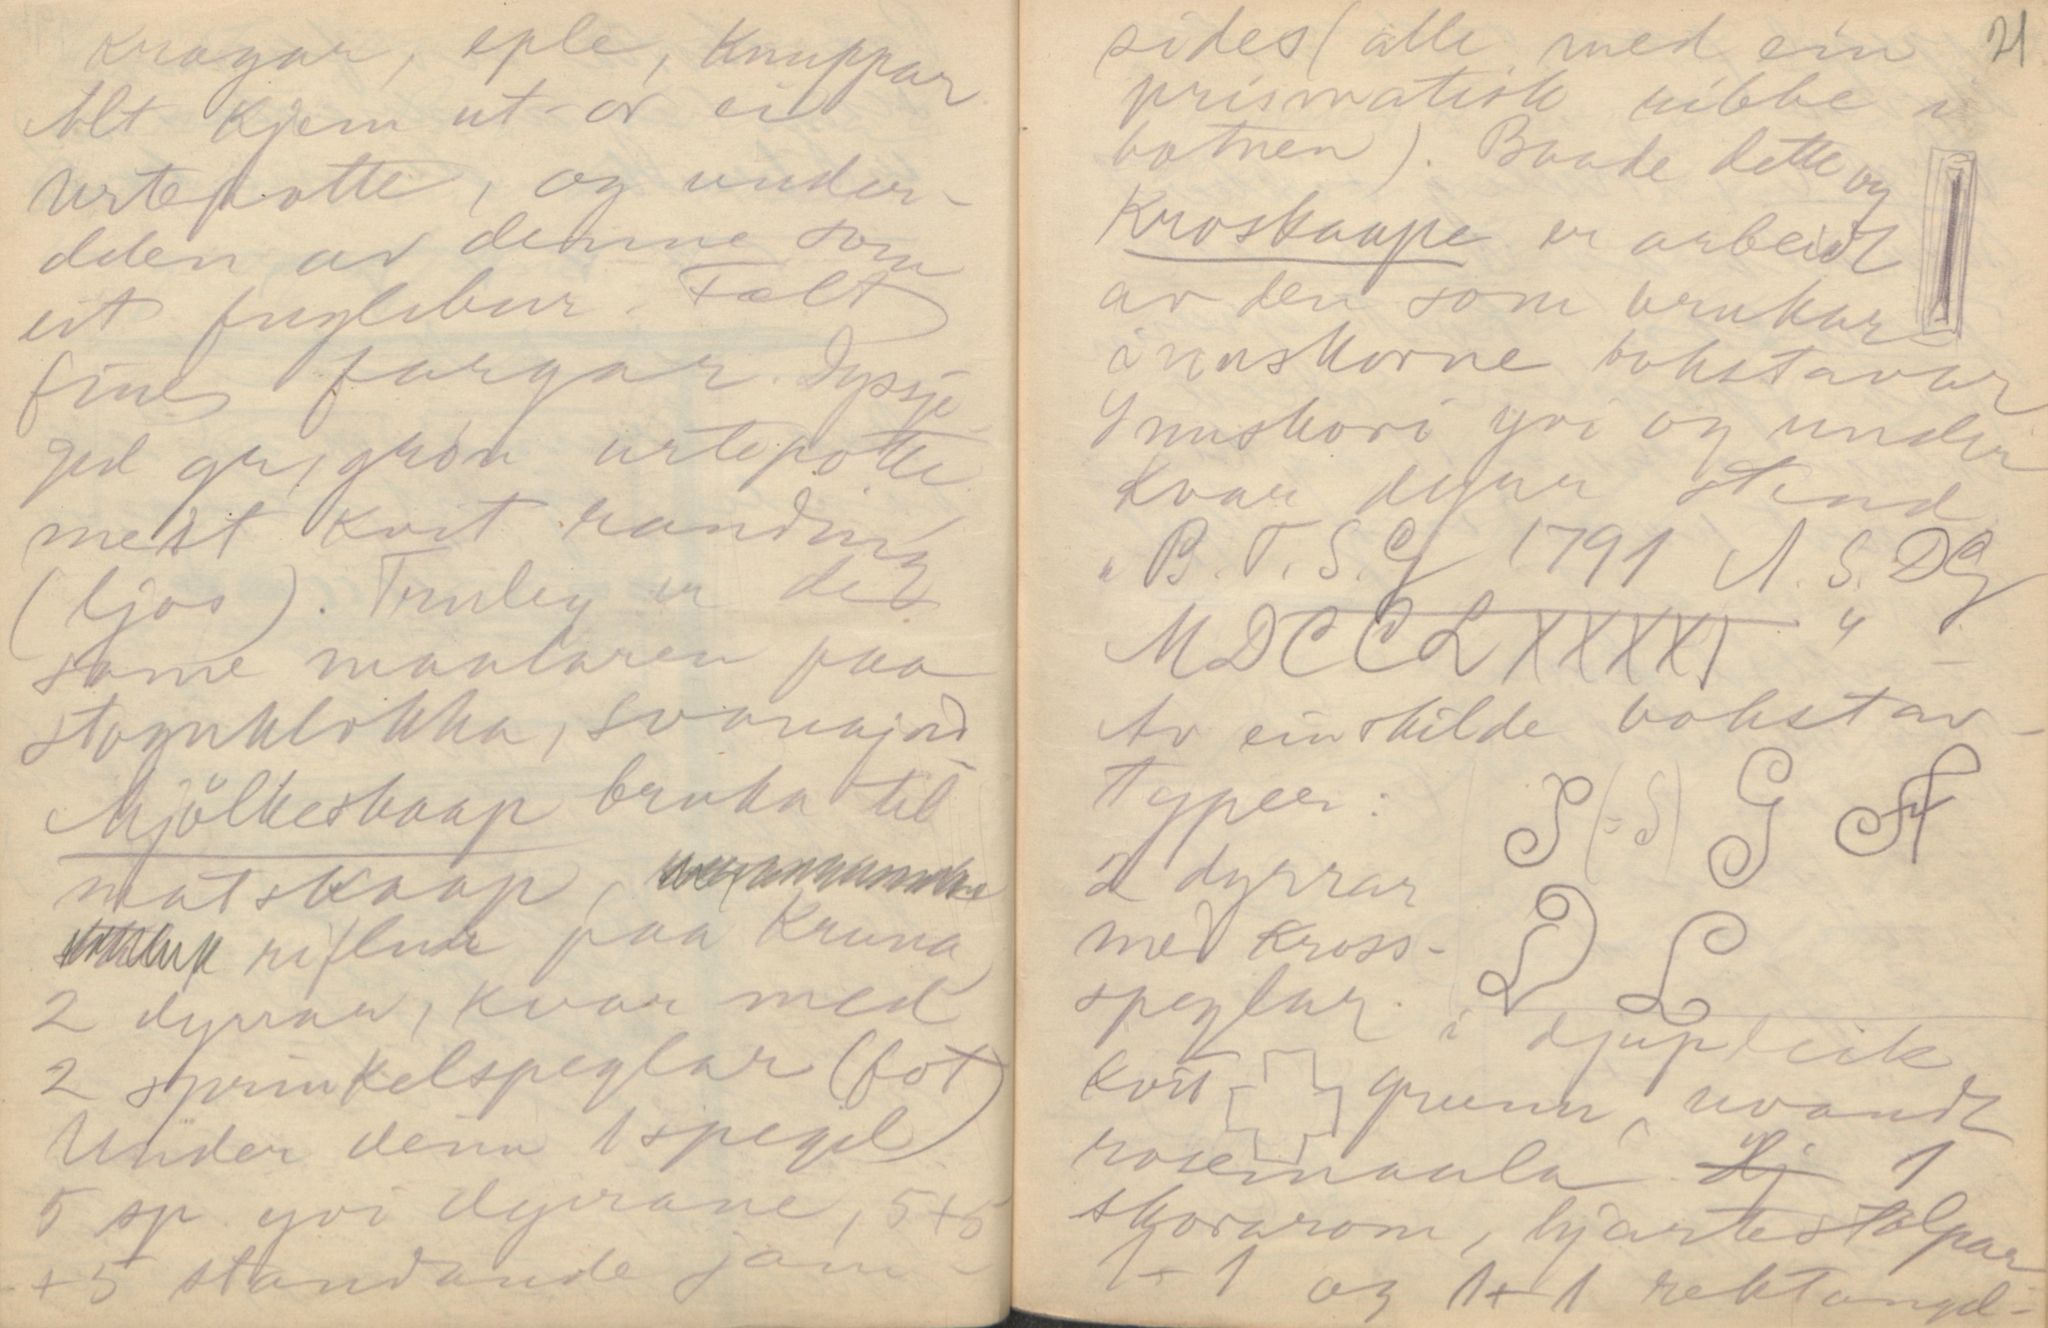 kragar, eple, knuppar
Alt kjem ut or ei
urtepotte, og under-
delen av denne som
eit fuglebur. Fælt
fine fargar.
gul gr, grön urtepotte
mest kvit randing
(ljos). Truleg er det
same maalaren paa
stovuklokka, Svanajord
Mjölkeskaap bruka til
matskaap,
riflur paa kruna
2 dyrrar, kvar med
2 sprinkelspeglar (fot)
Under deim 1 spegil
5 sp. yvi dyrrane, 5+5
+5 standande jam-
21
sides (alle med ein
prismatisk ribbe i
botnen). Baade dette og
Kroskaape er arbeidt
av den som brukar
innskorne bokstavar
Innskori yvi og under
kvar dyrr stend
"B.T.S.G 1791 A.S.DG
MDCCLXXXXI"
Av einskilde bokstav-
typer: S (=S) G A
2 dyrrar
med kross- D L
speglar. i djupleik
kvit grunn, uvandt
rosemaala. Hj 1
skorarom, hjartestolpar
1+1 og 1+1 rektangel-